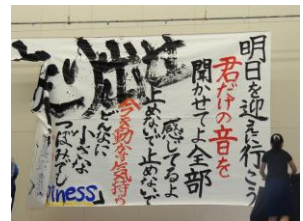 明日を迎え行こう
君だけの音を
聞かせてよ全部
感じてるよ
止めないで止めないで
今を動かす気持ち
どんなに
小さな
つぼみでも
iness」